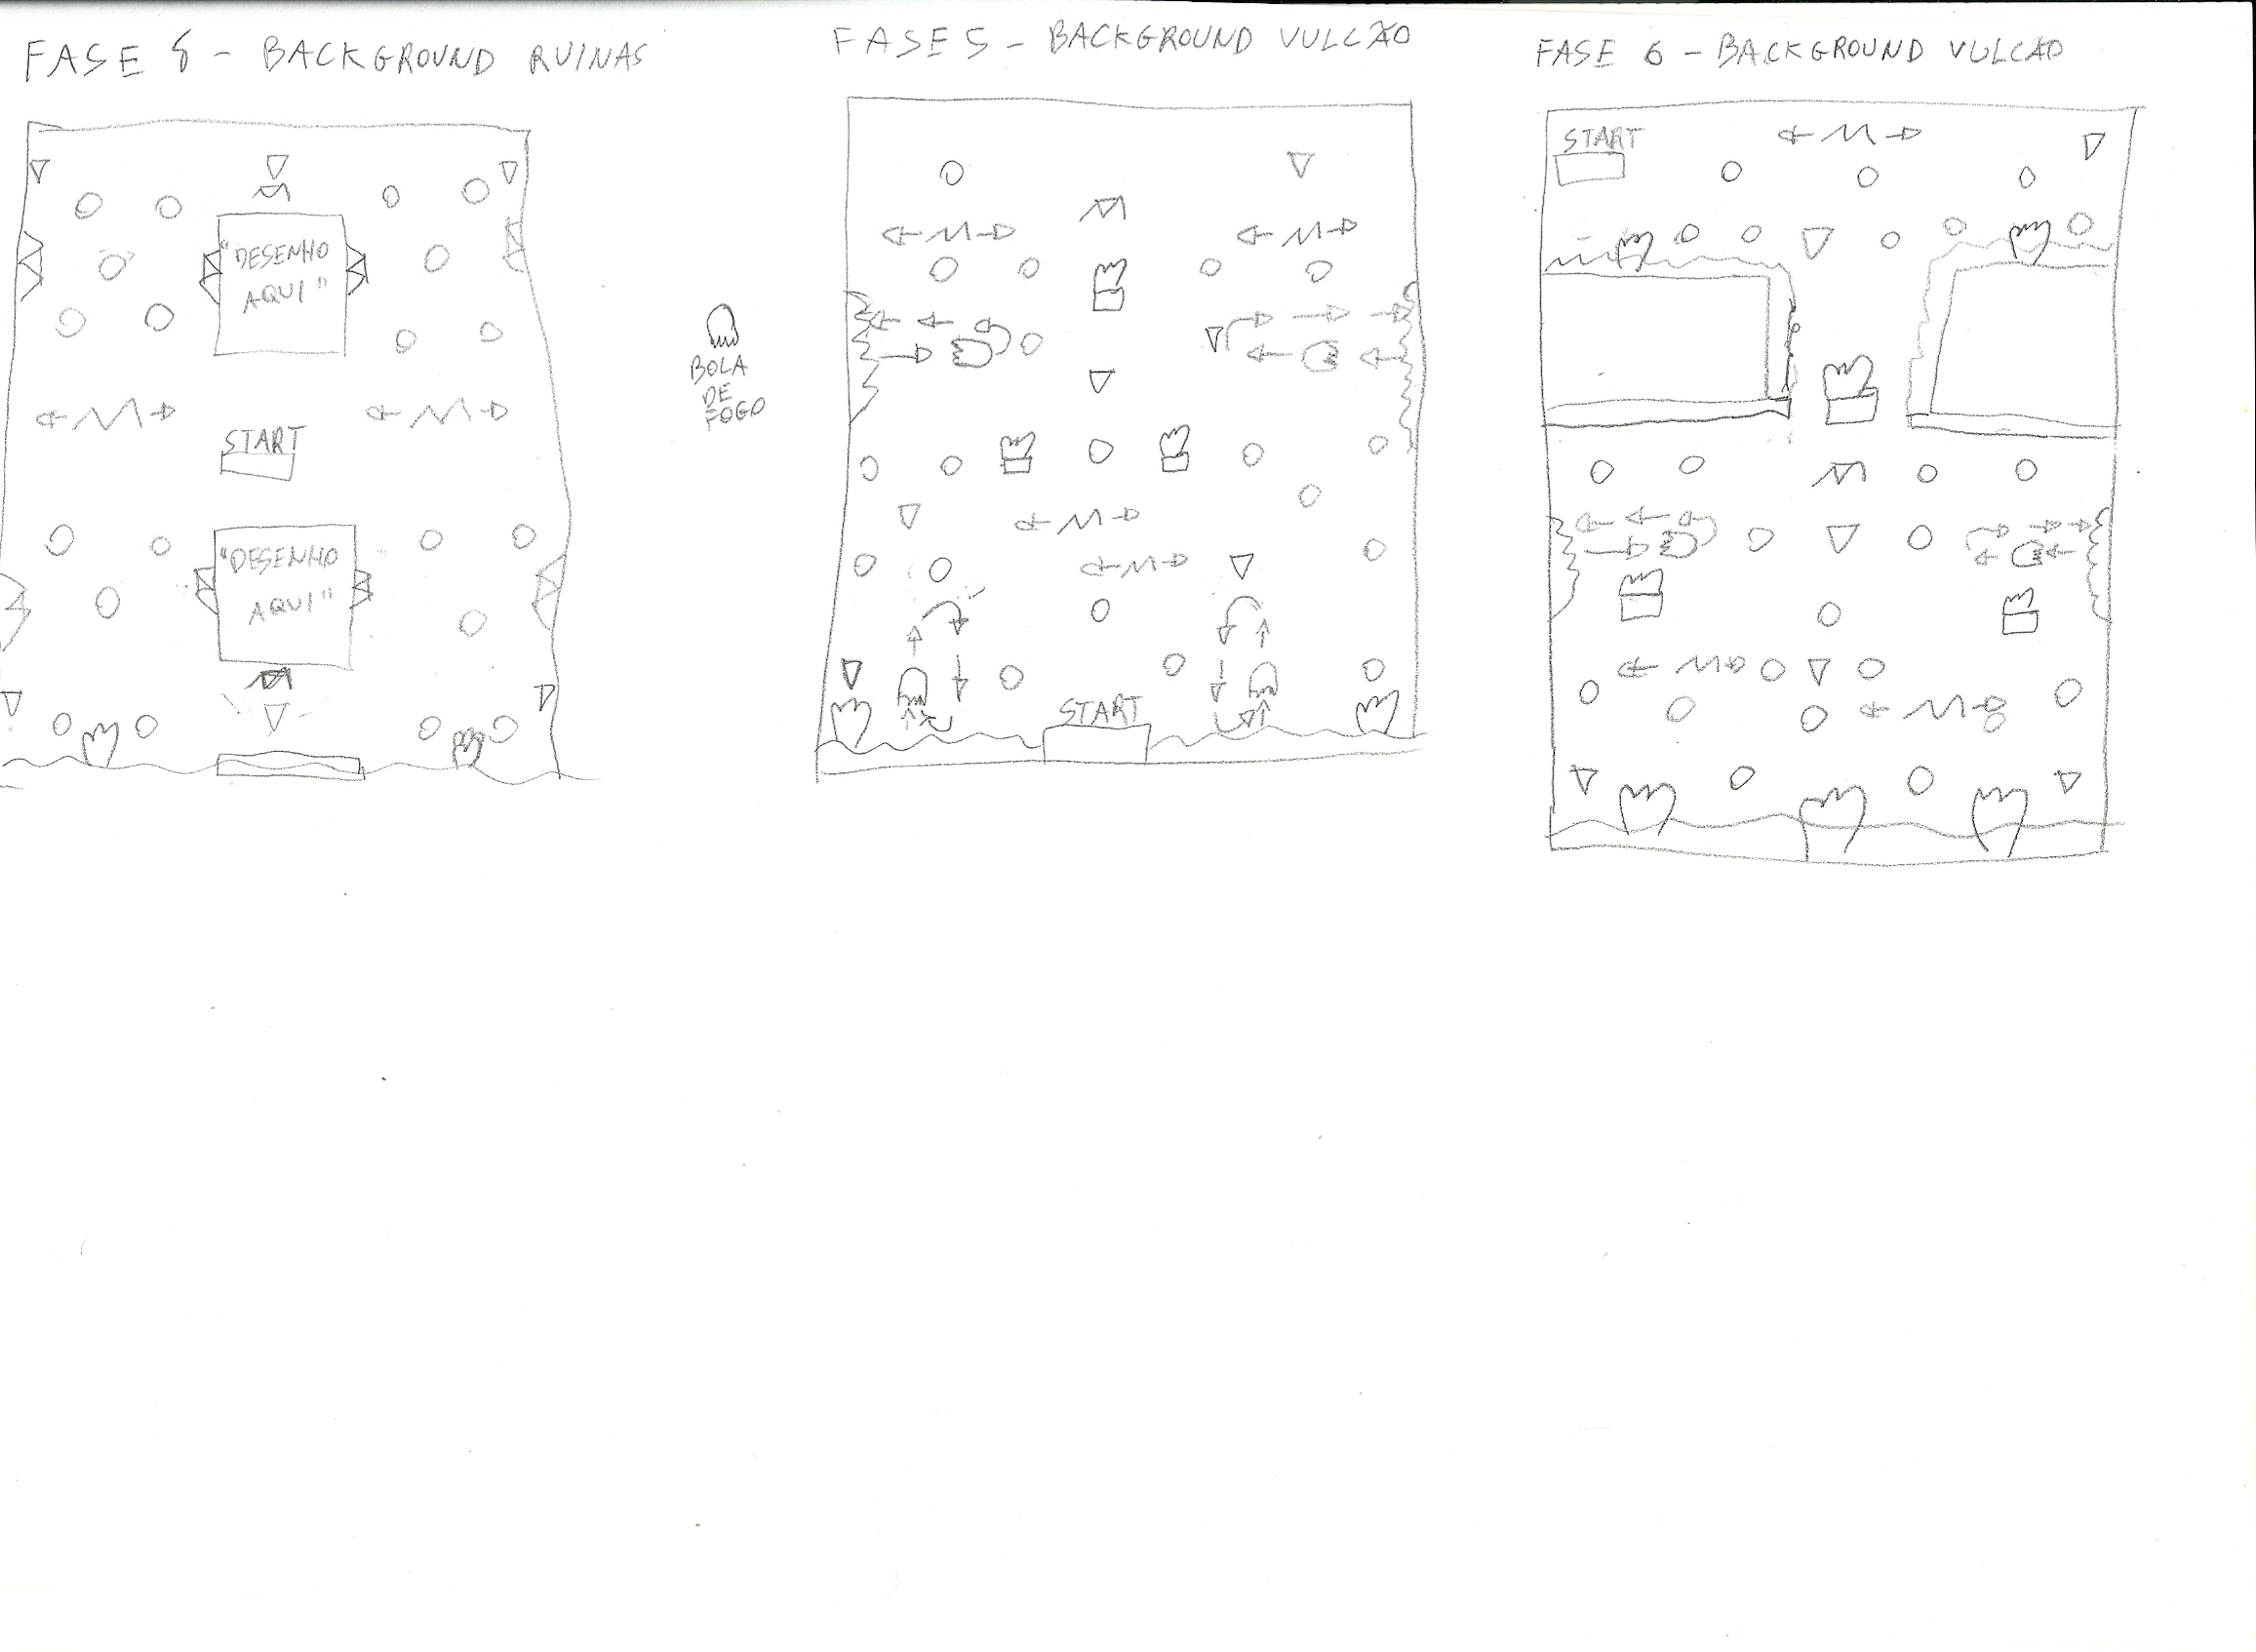 FASE 8 - BACKGROUND RUINAS
"DESENHO
AQUI"
START
"DESENHO
AQUI"
BOLA
DE
FOGO
FASE 5 - BACKGROUND VULCÃO
START
FASE 6 - BACKGROUND VULCÃO
START